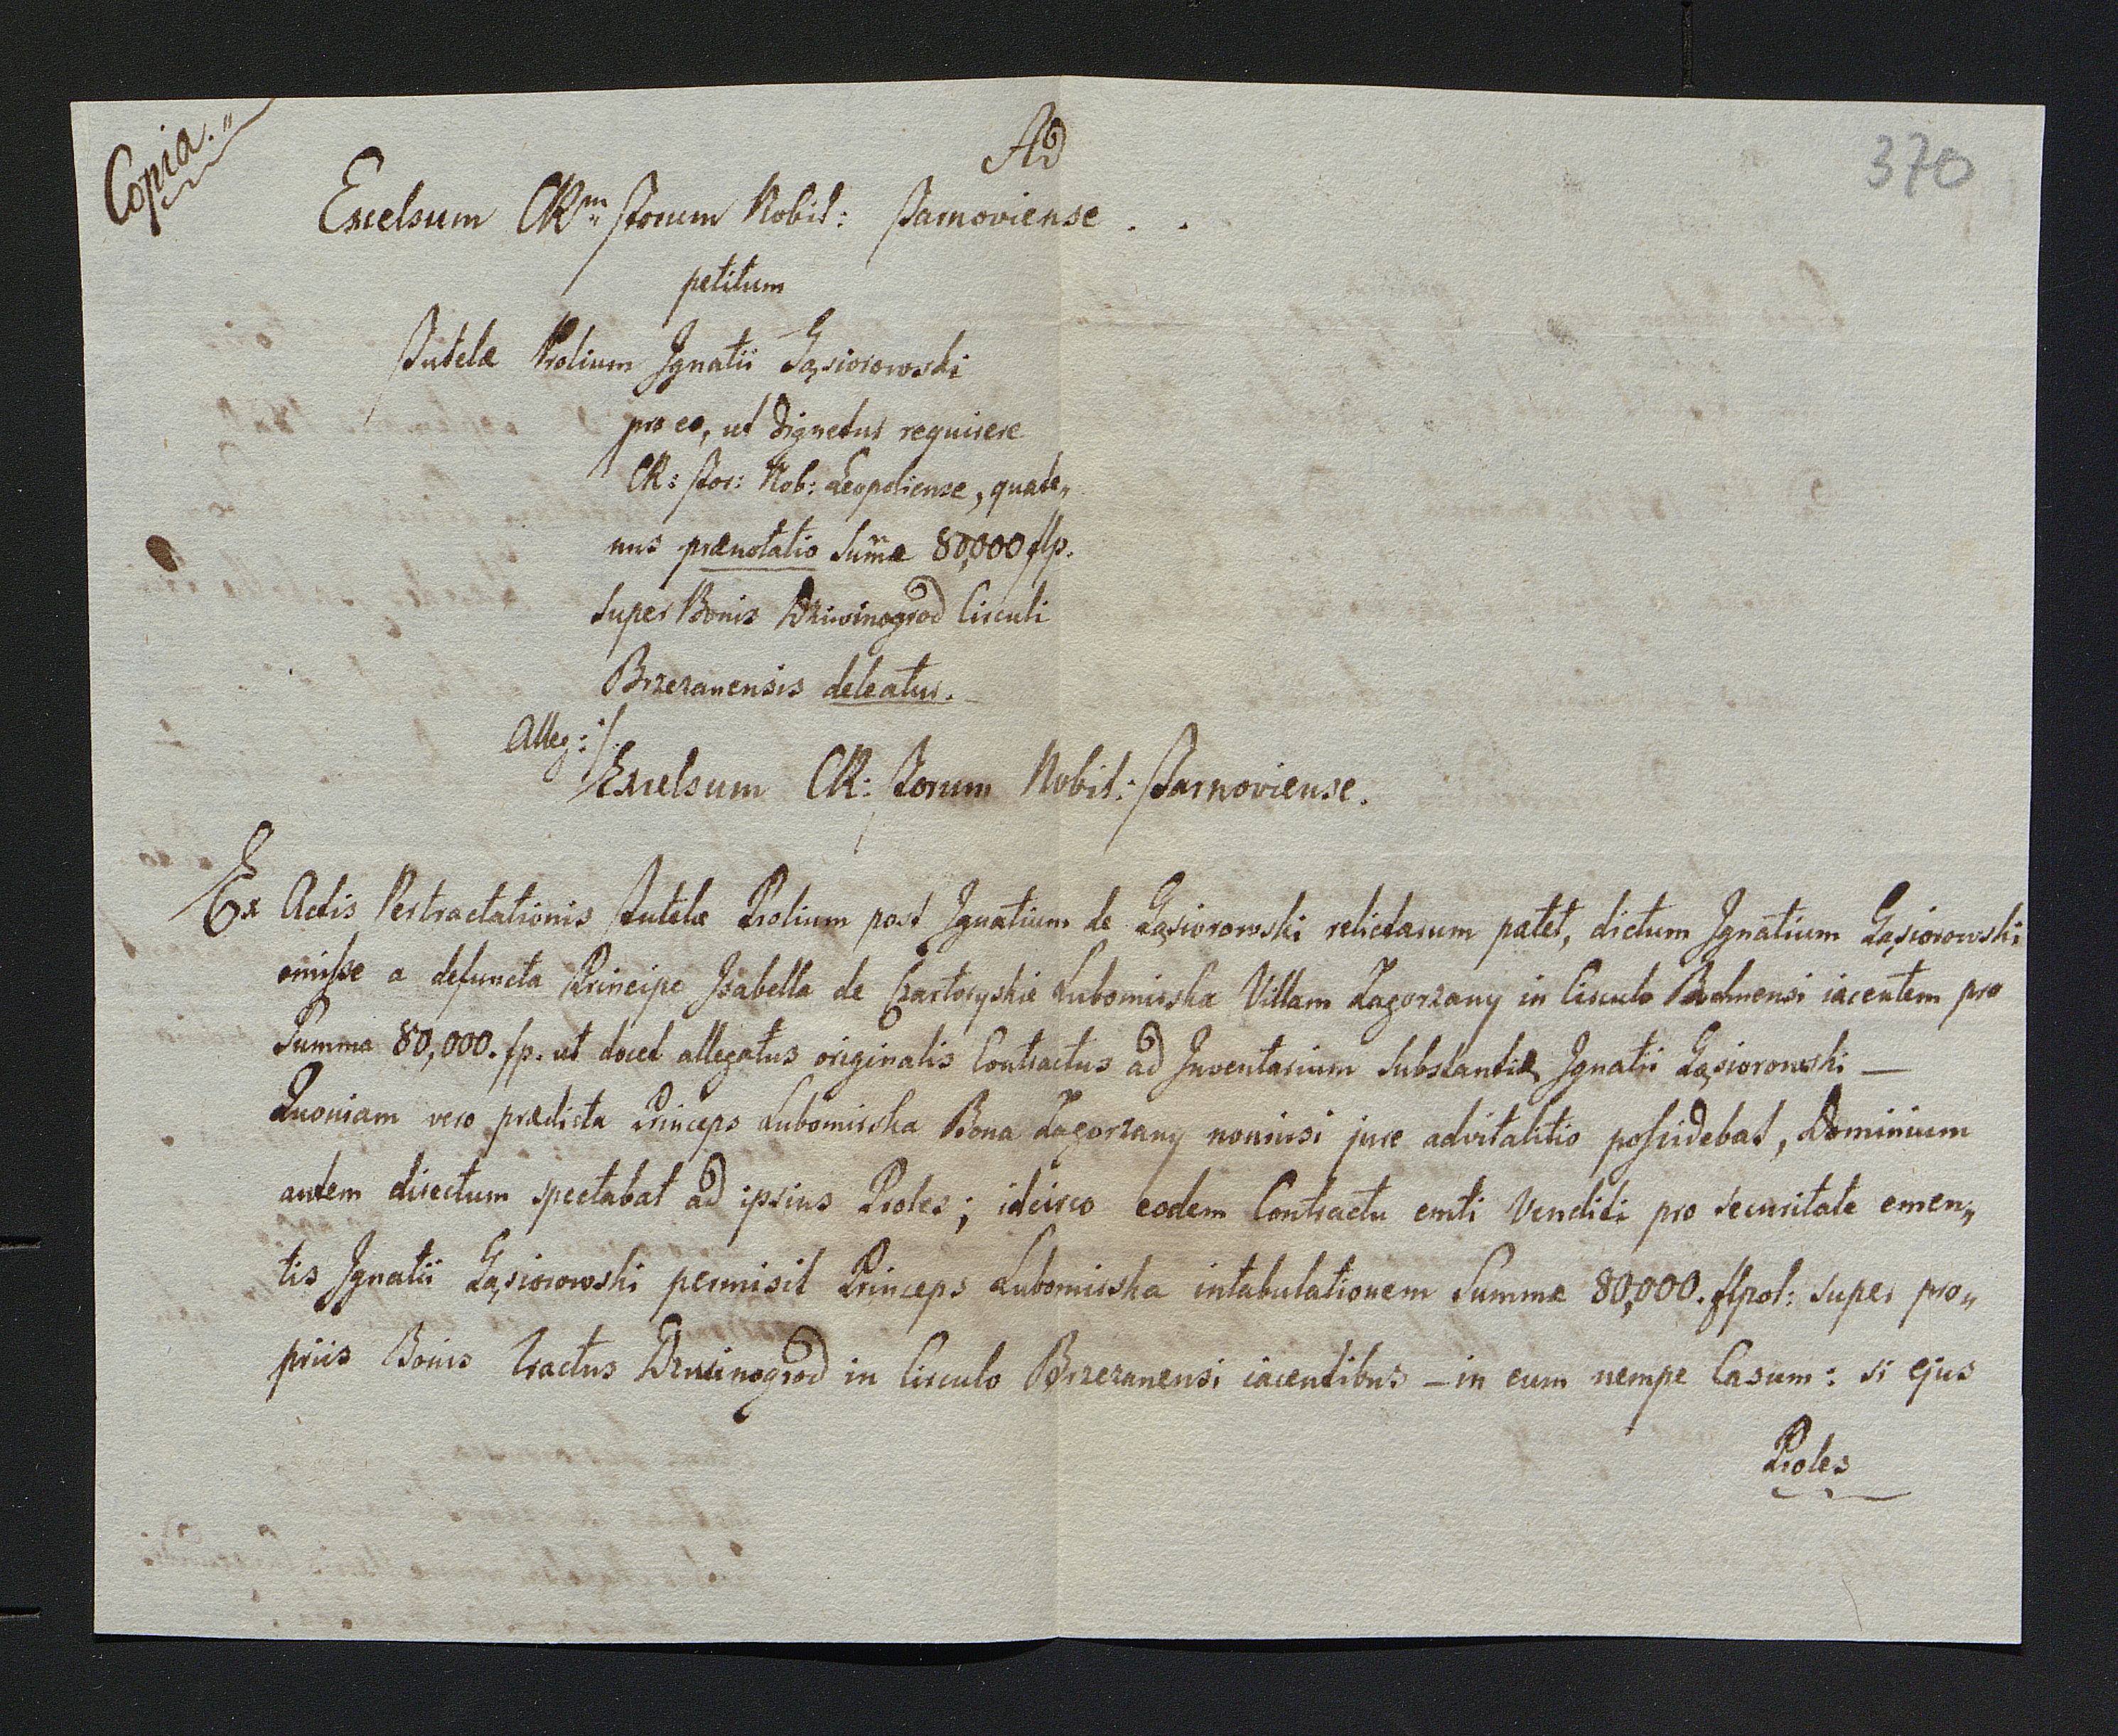 Copia.
370
Ad
Excelsum CRm Forum Nobil: Tarnoviense . .
petitum
Tutelæ Prolium Ignatii Gąsiorowski
pro eo, ut dignetur requirere
CR: For: Nob: Leopoliense, quate„
nus prænotatio Sum̄æ 80,000 flp.
super Bonis Dzwinogrod Circuli
Brzezanensis deleatur.
Alleg: ·/.
Excelsum CR: Forum Nobil: Tarnoviense.
Ex Actis Pertractationis Tutelæ Prolium post Ignatium de Gąsiorowski relictarum patet, dictum Ignatium Gąsiorowski
emisse a defuncta Principe Isabella de Czartoryskie Lubomirska Villam Zagorzany in Circulo Bochnensi iacentem pro
Summa 80,000. fp. ut docet allegatus originalis Contractus ad Inventarium Substantiæ Ignatii Gąsiorowski —
Quoniam vero prædicta Princeps Lubomirska Bona Zagorzany nonnisi jure advitalitio possidebat, Dominium
autem directum spectabat ad ipsius Proles; idcirco eodem Contractu emti Venditi pro securitate emen„
tis Ignatii Gąsiorowski permisit Princeps Lubomirska intabulationem Summæ 80,000. flpol: super pro„
priis Bonis tractus Dzwinogrod in Circulo Brzezanensi iacentibus – in eum nempe Casum: si ejus
Proles